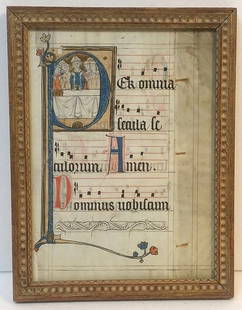 Per omnia
secula se
culorum. Amen.
Dominus uobiscum